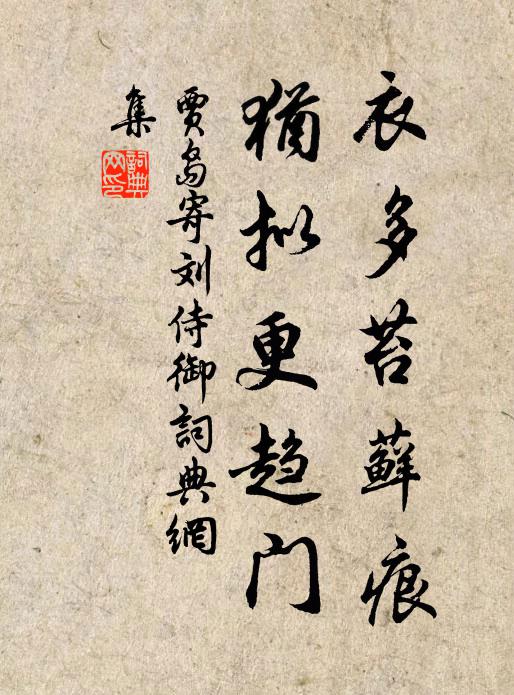 衣多苔藓痕
犹拟更趋门
贾岛寄刘侍御詞典網
集
詞典
网印